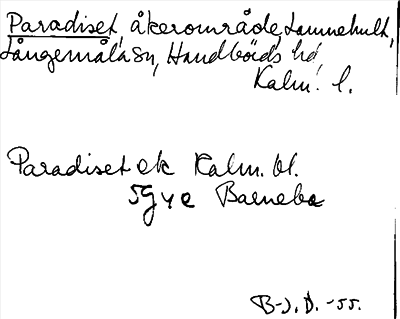 Paradiset, åkerområde, Lomnehult,
Långemåla sn, Handbörds hd
Kalm. l.
Paradiset ek Kalm. bl.
5G4e Barnebo
B-J.D. -55.